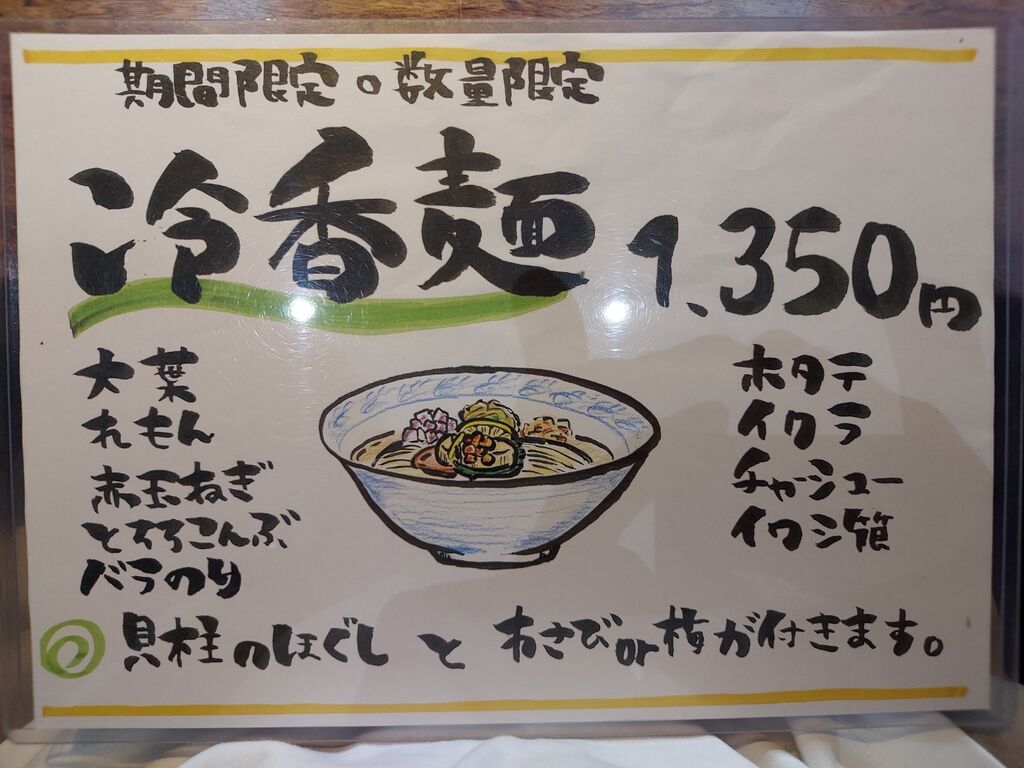 期間限定。数量限定
冷香麺 1,350円
大葉
れもん
赤玉ねぎ
とろろこんぶ
バラのり
ホタテ
イクラ
チャーシュー
イワシ節
貝柱のほぐし と わさびor梅が付きます。